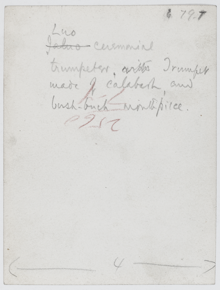 6 727
Luo
Jaluo ceremonial
trumpeters, with Trumpet
made of calabash, and
bush-buck mouthpiece.
4